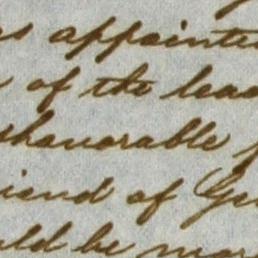 s appointe
of the lea
honorable
iend of Ge
uld be mor